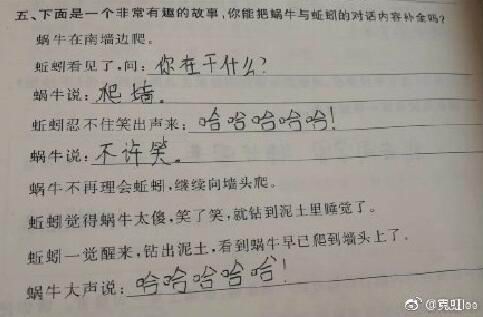 五、下面是一个非常有趣的故事,你能把蜗牛与蚯蚓的对话内容补全吗?
蜗牛在南墙边爬。
蚯蚓看见了,问:你在干什么?
蜗牛说:爬墙。
蚯蚓忍不住笑出声来:哈哈哈哈哈!
蜗牛说:不许笑。
蜗牛不再理会蚯蚓,继续向墙头爬。
蚯蚓觉得蜗牛太傻,笑了笑,就钻到泥土里睡觉了。
蚯蚓一觉醒来,钻出泥土,看到蜗牛早已爬到墙头上了。
蜗牛大声说:哈哈哈哈哈!